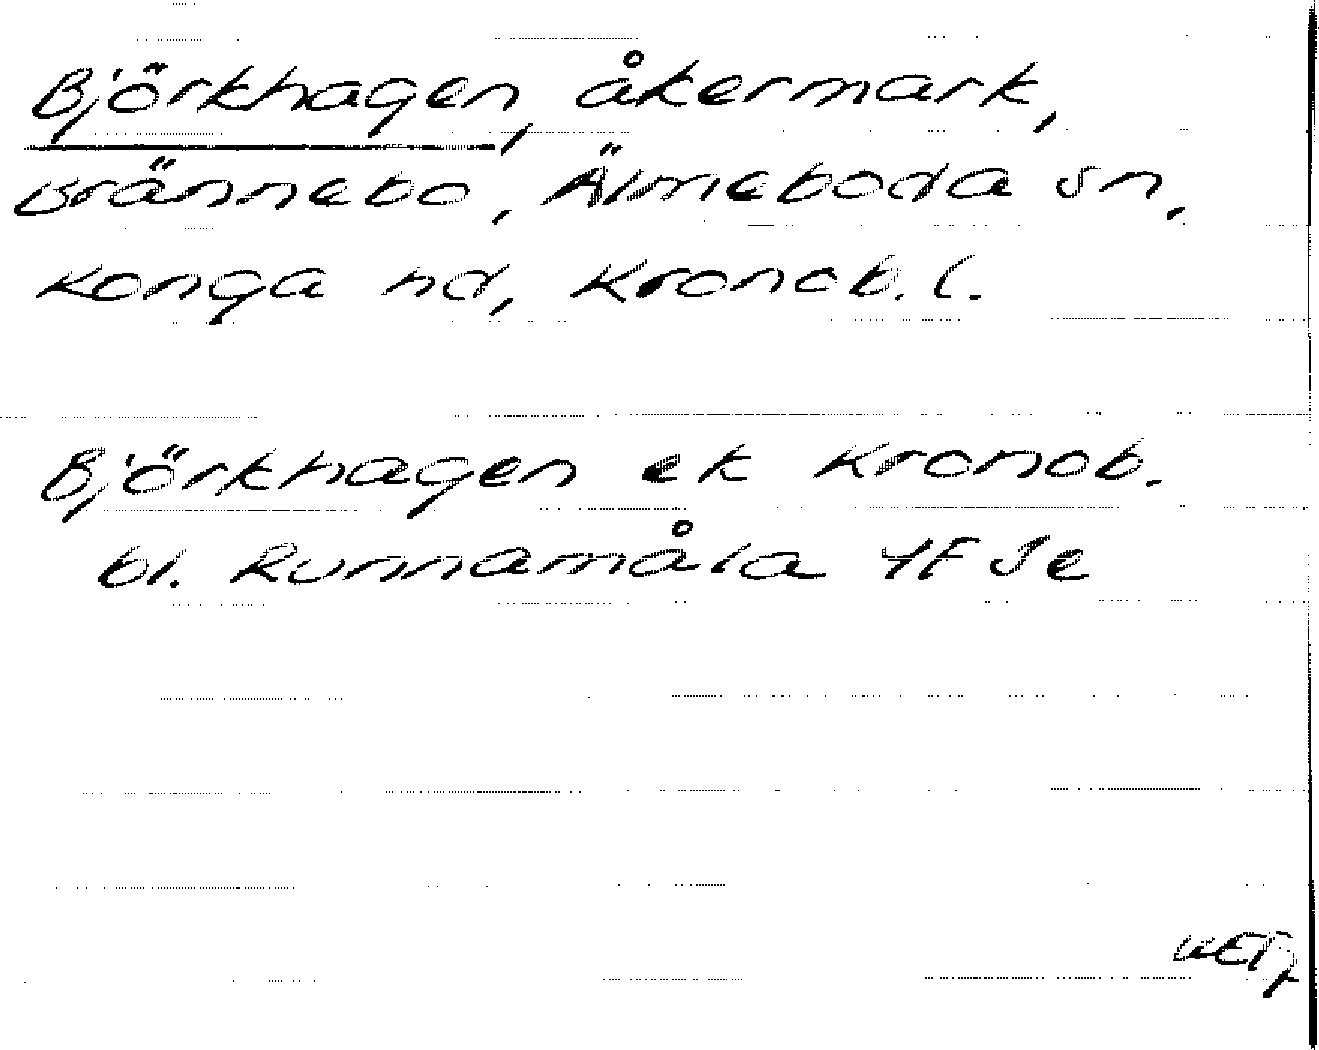 Björkhagen, åkermark,
Brännebo, Älmeboda sn,
Konga hd, Kronob. l.
Björkhagen ek Kronob.
bl. Runnamåla 4F Je